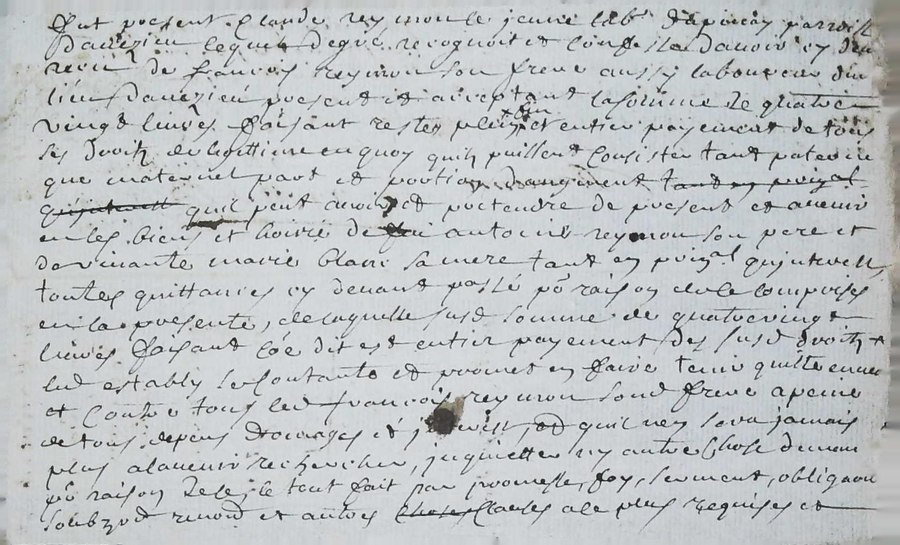 fut present Claude reymon le jeune labr d'apinay parroisse
Davezieu lequel de gré recognoit et confesse davoir cy devt
receu de francois reymon son frere aussy laboureur du
lieu davezieu present et acceptant la somme de quatre
vingt livres faisant restes plein et entier payement de tous
ses droitz de legittime en quoy quilz puissent consister tant paternel
que maternel part et portion daugment tant en prinpal
quintherestz quil peut avoir et pretendre de present et avenir
en les biens et hoirie de feu antoine reymon son pere et
de vivante marie blanc sa mere tant en prinal quintherestz
toutes quittances cy devant passé po raison de ce comprises
en la presente, de laquelle susd somme de quatre vingt
livres faisant coe dit est entier payement des susd droitz
led estably se contante et promet en faire tenir quitte envers
et contre tous led francois reymon sond frere a peine
de tous depens domages et quil ny sera jamais
plus a lavenir rechercher, inquietter ny autre chose demandé
po raison de ce, le tout fait par promesse, foy, serment, obligaon
soubz et autres clauses a ce plus requises et